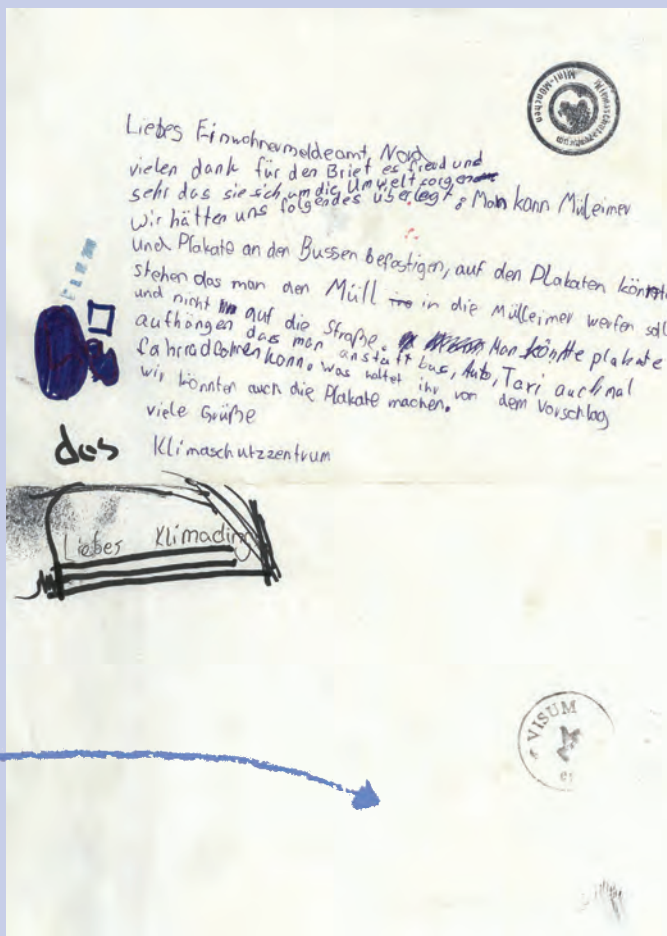 Mini-München
Liebes Einwohnermeldeamt Nord
vielen dank für den Brief es freud und
sehr das sie sich um die Umwelt sorgen
wir hätten uns folgendes überlegt: Man kann Müleimer
und Plakate an den Bussen befestigen, auf den Plakaten könnte
stehen das man den Müll in die Mülleimer werfen soll
und nicht auf die Straße. Man könnte plakate
aufhängen das man anstatt bus, Auto, Taxi auch mal
fahrradfahren kann. was haltet ihr von dem Vorschlag
wir könnten auch die Plakate machen.
viele Grüße
das Klimaschutzzentrum
Liebes Klimading
VISUM